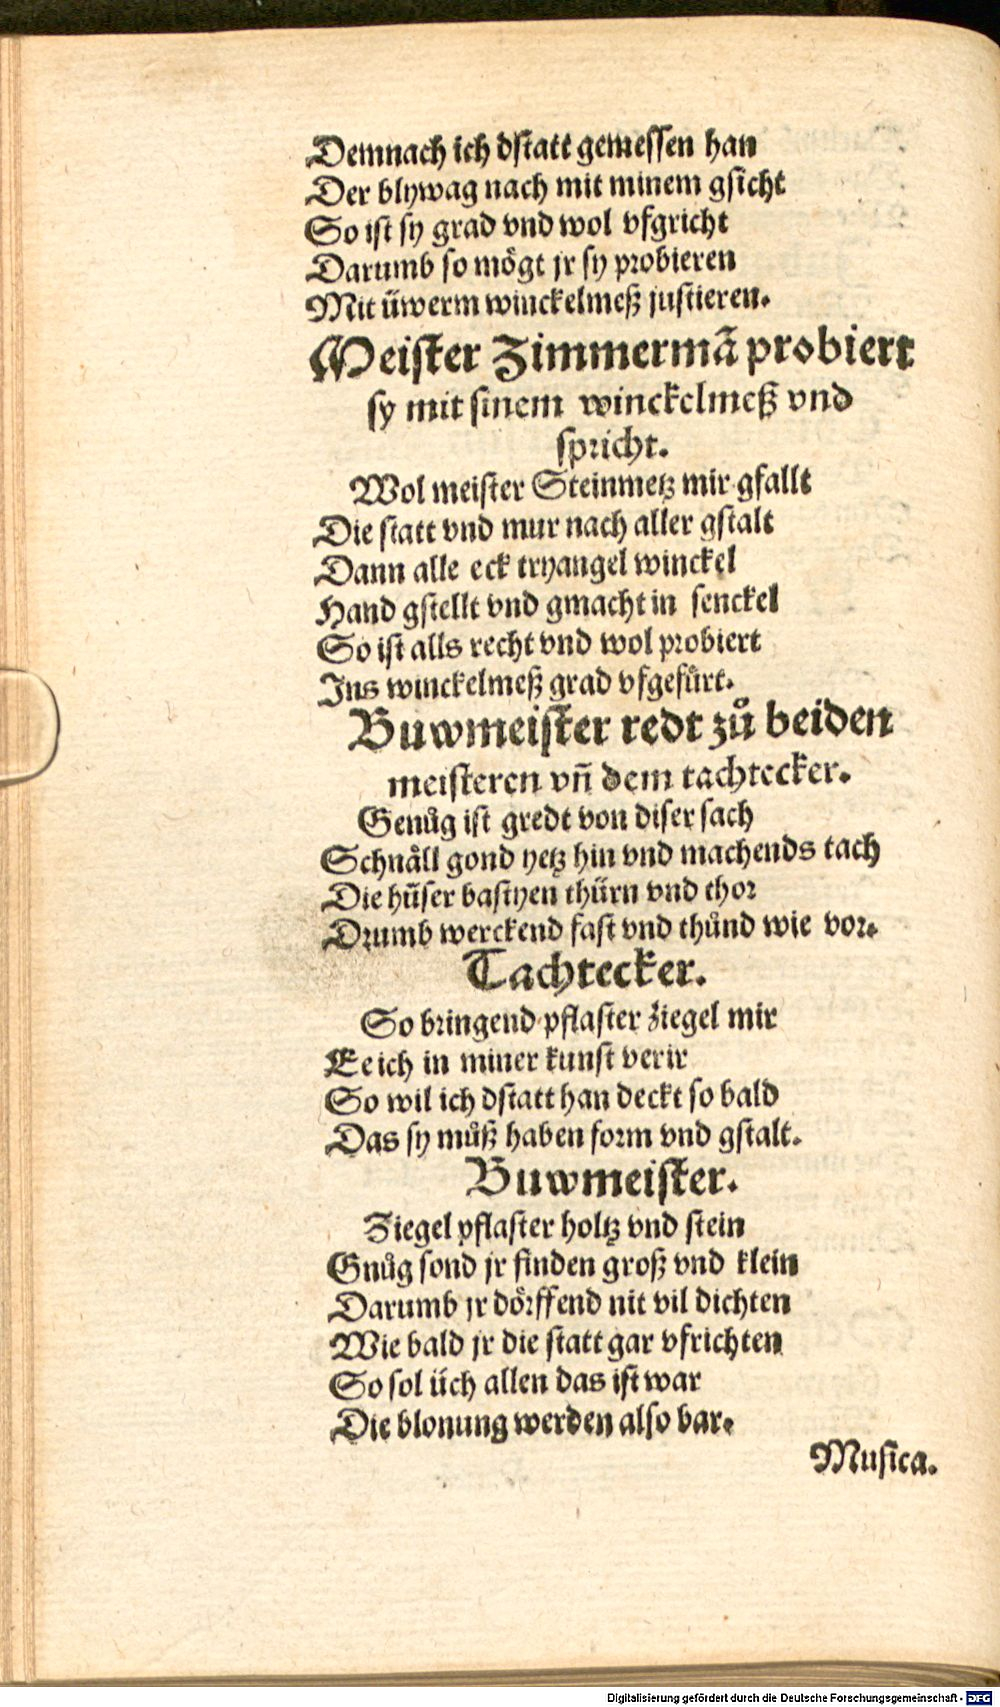 Demnach ich dſtatt gemeſſen han
Der blywag nach mit minem gſicht
So iſt ſy grad vnd wol vfgricht
Darumb ſo moͤgt jr ſy probieren
Mit uͤwerm winckelmeß juſtieren.
Meiſter Zimmermā probiert
ſy mit ſinem winckelmeß vnd
ſpricht.
Wol meiſter Steinmetz mir gfallt
Die ſtatt vnd mur nach aller gſtalt
Dann alle eck tryangel winckel
Hand gſtellt vnd gmacht in ſenckel
So iſt alls recht vnd wol probiert
Ins winckelmeß grad vfgefuͤrt.
Buwmeiſter redt zů beiden
meiſteren vñ dem tachtecker.
Genůg iſt gredt von diſer ſach
Schnaͤll gond yetz hin vnd machends tach
Die huͤſer baſtyen thuͤrn vnd thor
Drumb werckend faſt vnd thůnd wie vor.
Tachtecker.
So bringend pflaſter ziegel mir
Ee ich in miner kunſt verir
So wil ich dſtatt han deckt ſo bald
Das ſy můß haben form vnd gſtalt.
Buwmeiſter.
Ziegel pflaſter holtz vnd ſtein
Gnůg ſond jr finden groß vnd klein
Darumb jr doͤrffend nit vil dichten
Wie bald jr die ſtatt gar vfrichten
So ſol uͤch allen das iſt war
Die blonung werden alſo bar.
Muſica.
Digitalisierung gefördert durch die Deutsche Forschungsgemeinschaft - DFG